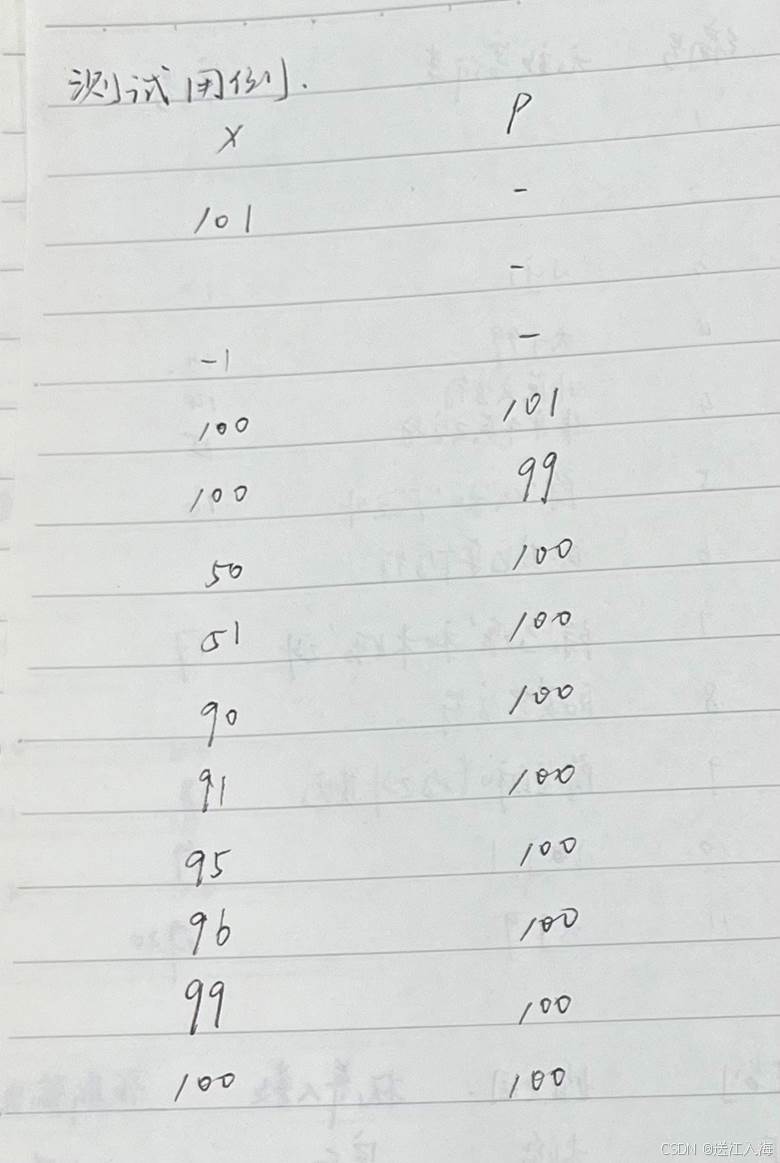 测试用例.
X P
101 -
-
-1 -
100 101
100 99
50 100
51 100
90 100
91 100
95 100
96 100
99 100
100 100
CSDN @送江入海